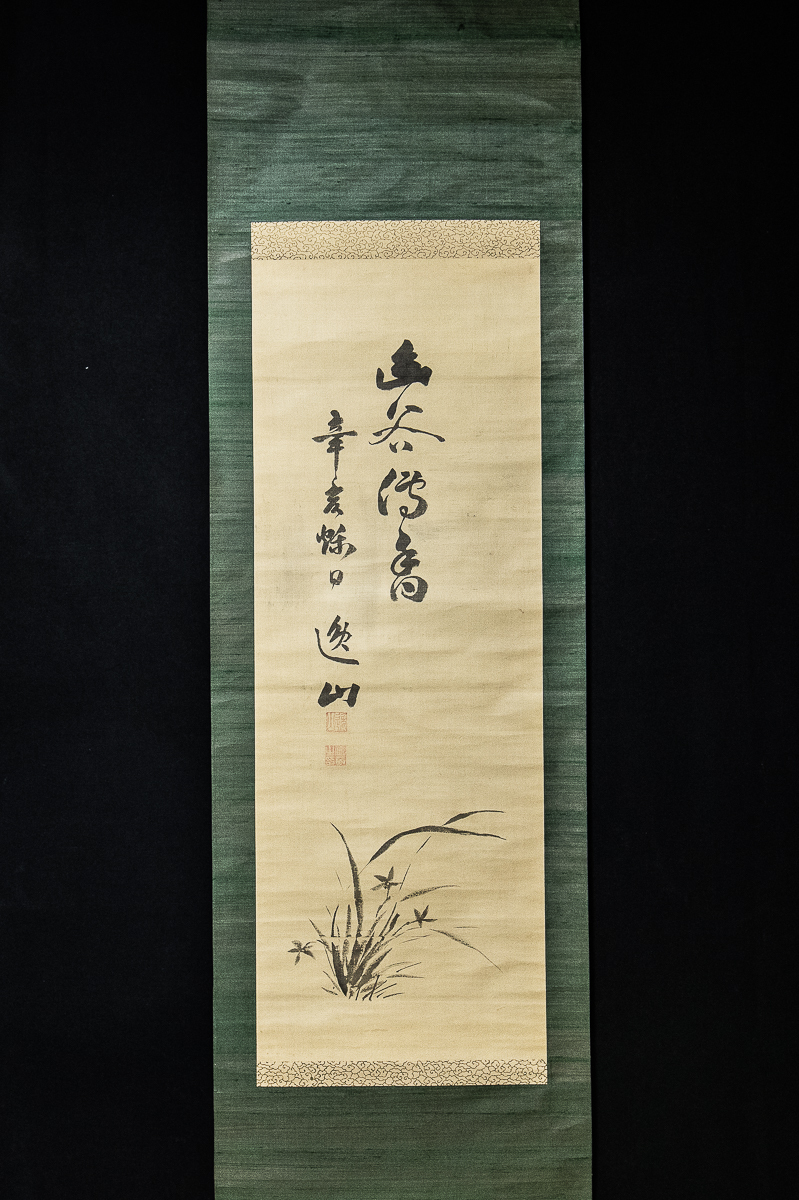 幽谷傳香
辛亥爍日 逸山